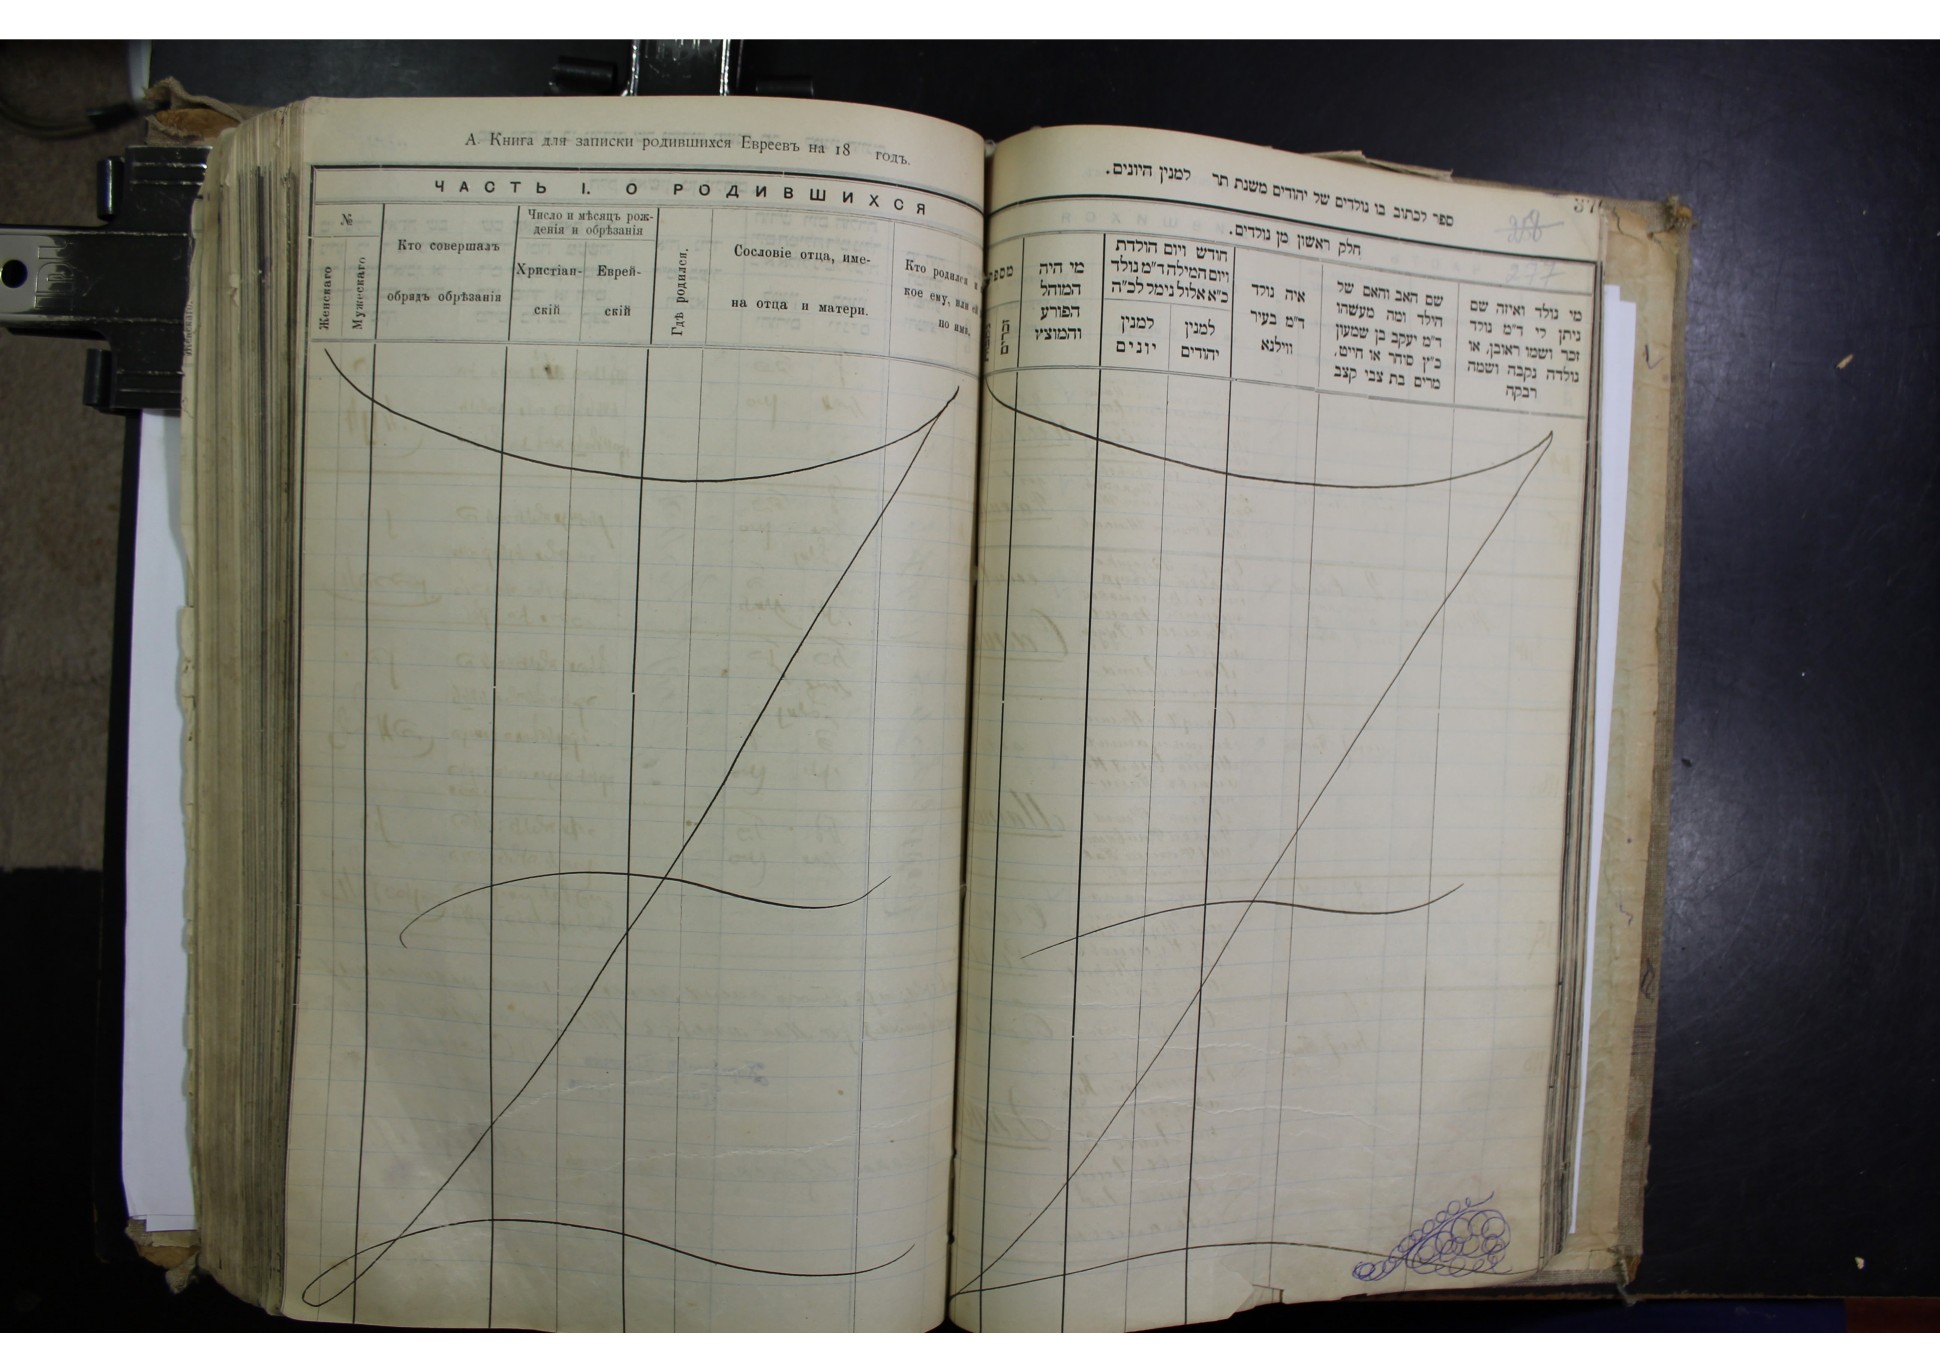 А. Книга для записки родившихся Евреевъ на 18 годъ.
ЧАСТЬ I. О РОДИВШИХСЯ
№
Женскаго
Мужескаго
Кто совершалъ
обрядъ обрѣзанія
Число и мѣсяцъ рож-
денія и обрѣзанія
Христіан-
скій
Еврей-
скій
Гдѣ родился.
Сословіе отца, име-
на отца и матери.
Кто родился и
кое ему, или ей
по имя,
ספר לכתוב בו נולדים של יהודים משנת תר למנין היונים.
277
חלק ראשון מן נולדים.
מספר
זכרים
מי היה
המוהל
הפורע
והמוצץ
חודש ויום הולדת
ויום המילה ד״מ נולד
כ״א אלול נימל לכ״ה
למנין
יונים
למנין
יהודים
איה נולד
ד״מ בעיר
ווילנא
שם האב והאם של
הילד ומה מעשהו
ד״מ יעקב בן שמעון
כ״ץ סוחר או חייט,
מרים בת צבי קצב
מי נולד ואיזה שם
ניתן לו ד״מ נולד
זכר ושמו ראובן, או
נולדה נקבה ושמה
רבקה